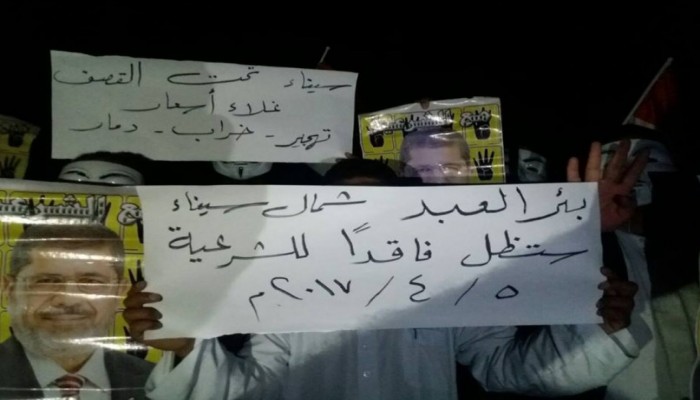 سيناء تحت القصف
غلاء أسعار
تهجير - خراب - دمار
بئر العبد شمال سيناء
ستظل فاقدًا للشرعية
٥ / ٤ / ٢٠١٧م